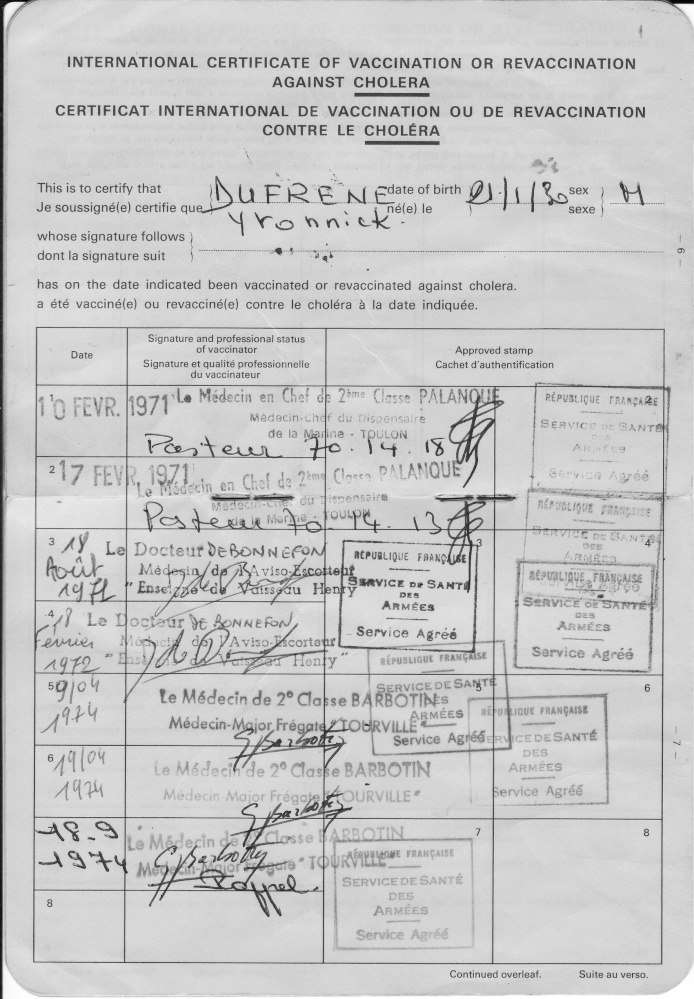 INTERNATIONAL CERTIFICATE OF VACCINATION OR REVACCINATION
AGAINST CHOLERA
CERTIFICAT INTERNATIONAL DE VACCINATION OU DE REVACCINATION
CONTRE LE CHOLÉRA
This is to certify that
Je soussigné(e) certifie que
DUFRENE
Yvonnick.
date of birth
né(e) le
21/1/30
sex
sexe
M
whose signature follows
dont la signature suit
has on the date indicated been vaccinated or revaccinated against cholera.
a été vacciné(e) ou revacciné(e) contre le choléra à la date indiquée.
- 6 -
Date
Signature and professional status
of vaccinator
Signature et qualité professionnelle
du vaccinateur
Approved stamp
Cachet d'authentification
10 FEVR. 1971
Le Médecin en Chef de 2ème Classe PALANQUE
Médecin-Chef du Dispensaire
de la Marine - TOULON
Pasteur 70.14.18
RÉPUBLIQUE FRANÇAISE
SERVICE DE SANTÉ
DES
Service Agréé
2
17 FEVR. 1971
Le Médecin en Chef de 2ème Classe PALANQUE
Médecin-Chef du Dispensaire
de la Marine - TOULON
Pasteur 70.14.13
RÉPUBLIQUE FRANÇAISE
SERVICE DE SANTÉ
DES
ARMÉES
3
18
Août
1971
Le Docteur DE BONNEFON
Médecin de l'Aviso-Escorteur
"Enseigne de Vaisseau Henry"
3
RÉPUBLIQUE FRANÇAISE
SERVICE DE SANTÉ
DES
ARMÉES
Service Agréé
4
RÉPUBLIQUE FRANÇAISE
SERVICE DE SANTÉ
DES
ARMÉES
Service Agréé
4
18
Février
1972
Le Docteur DE BONNEFON
Médecin de l'Aviso-Escorteur
"Enseigne de Vaisseau Henry"
5
9/04
1974
Le Médecin de 2° Classe BARBOTIN
Médecin-Major Frégate "TOURVILLE"
GBarbotin
5
RÉPUBLIQUE FRANÇAISE
SERVICE DE SANTÉ
DES
ARMÉES
Service Agréé
6
RÉPUBLIQUE FRANÇAISE
SERVICE DE SANTÉ
DES
ARMÉES
Service Agréé
- 7 -
6
19/04
1974
Le Médecin de 2° Classe BARBOTIN
Médecin-Major Frégate "TOURVILLE"
GBarbotin
18-9
1974
Le Médecin de 2° Classe BARBOTIN
Médecin-Major Frégate "TOURVILLE"
GBarbotin
Rappel.
7
RÉPUBLIQUE FRANÇAISE
SERVICE DE SANTÉ
DES
ARMÉES
Service Agréé
8
8
Continued overleaf.
Suite au verso.